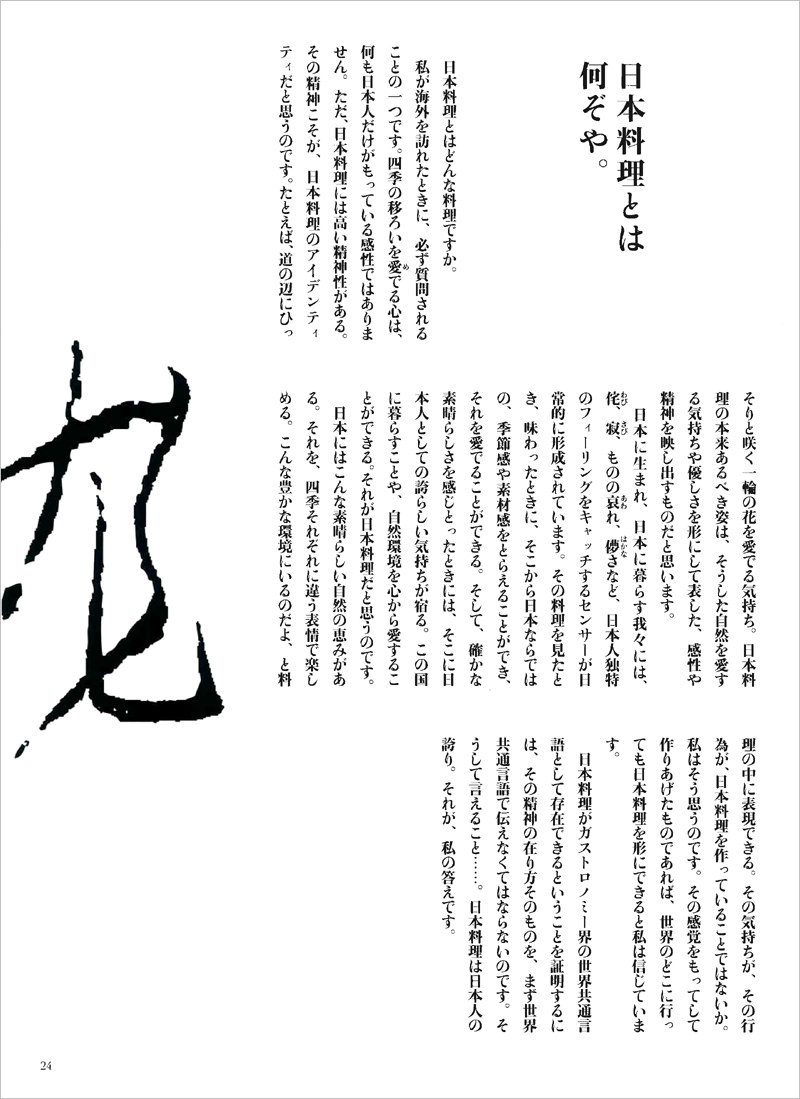 日本料理とは
何ぞや。
日本料理とはどんな料理ですか。
私が海外を訪れたときに、必ず質問される
ことの一つです。四季の移ろいを愛でる心は、
め
何も日本人だけがもっている感性ではありま
せん。ただ、日本料理には高い精神性がある。
その精神こそが、日本料理のアイデンティ
ティだと思うのです。たとえば、道の辺にひっ
そりと咲く一輪の花を愛でる気持ち。日本料
理の本来あるべき姿は、そうした自然を愛す
る気持ちや優しさを形にして表した、感性や
精神を映し出すものだと思います。
日本に生まれ、日本に暮らす我々には、
侘、寂、ものの哀れ、儚さなど、日本人独特
わび さび あわ はかな
のフィーリングをキャッチするセンサーが日
常的に形成されています。その料理を見たと
き、味わったときに、そこから日本ならでは
の、季節感や素材感をとらえることができ、
それを愛でることができる。そして、確かな
素晴らしさを感じとったときには、そこに日
本人としての誇らしい気持ちが宿る。この国
に暮らすことや、自然環境を心から愛するこ
とができる。それが日本料理だと思うのです。
日本にはこんな素晴らしい自然の恵みがあ
る。それを、四季それぞれに違う表情で楽し
める。こんな豊かな環境にいるのだよ、と料
理の中に表現できる。その気持ちが、その行
為が、日本料理を作っていることではないか。
私はそう思うのです。その感覚をもってして
作りあげたものであれば、世界のどこに行っ
ても日本料理を形にできると私は信じていま
す。
日本料理がガストロノミー界の世界共通言
語として存在できるということを証明するに
は、その精神の在り方そのものを、まず世界
共通言語で伝えなくてはならないのです。そ
うして言えること……。日本料理は日本人の
誇り。それが、私の答えです。
24